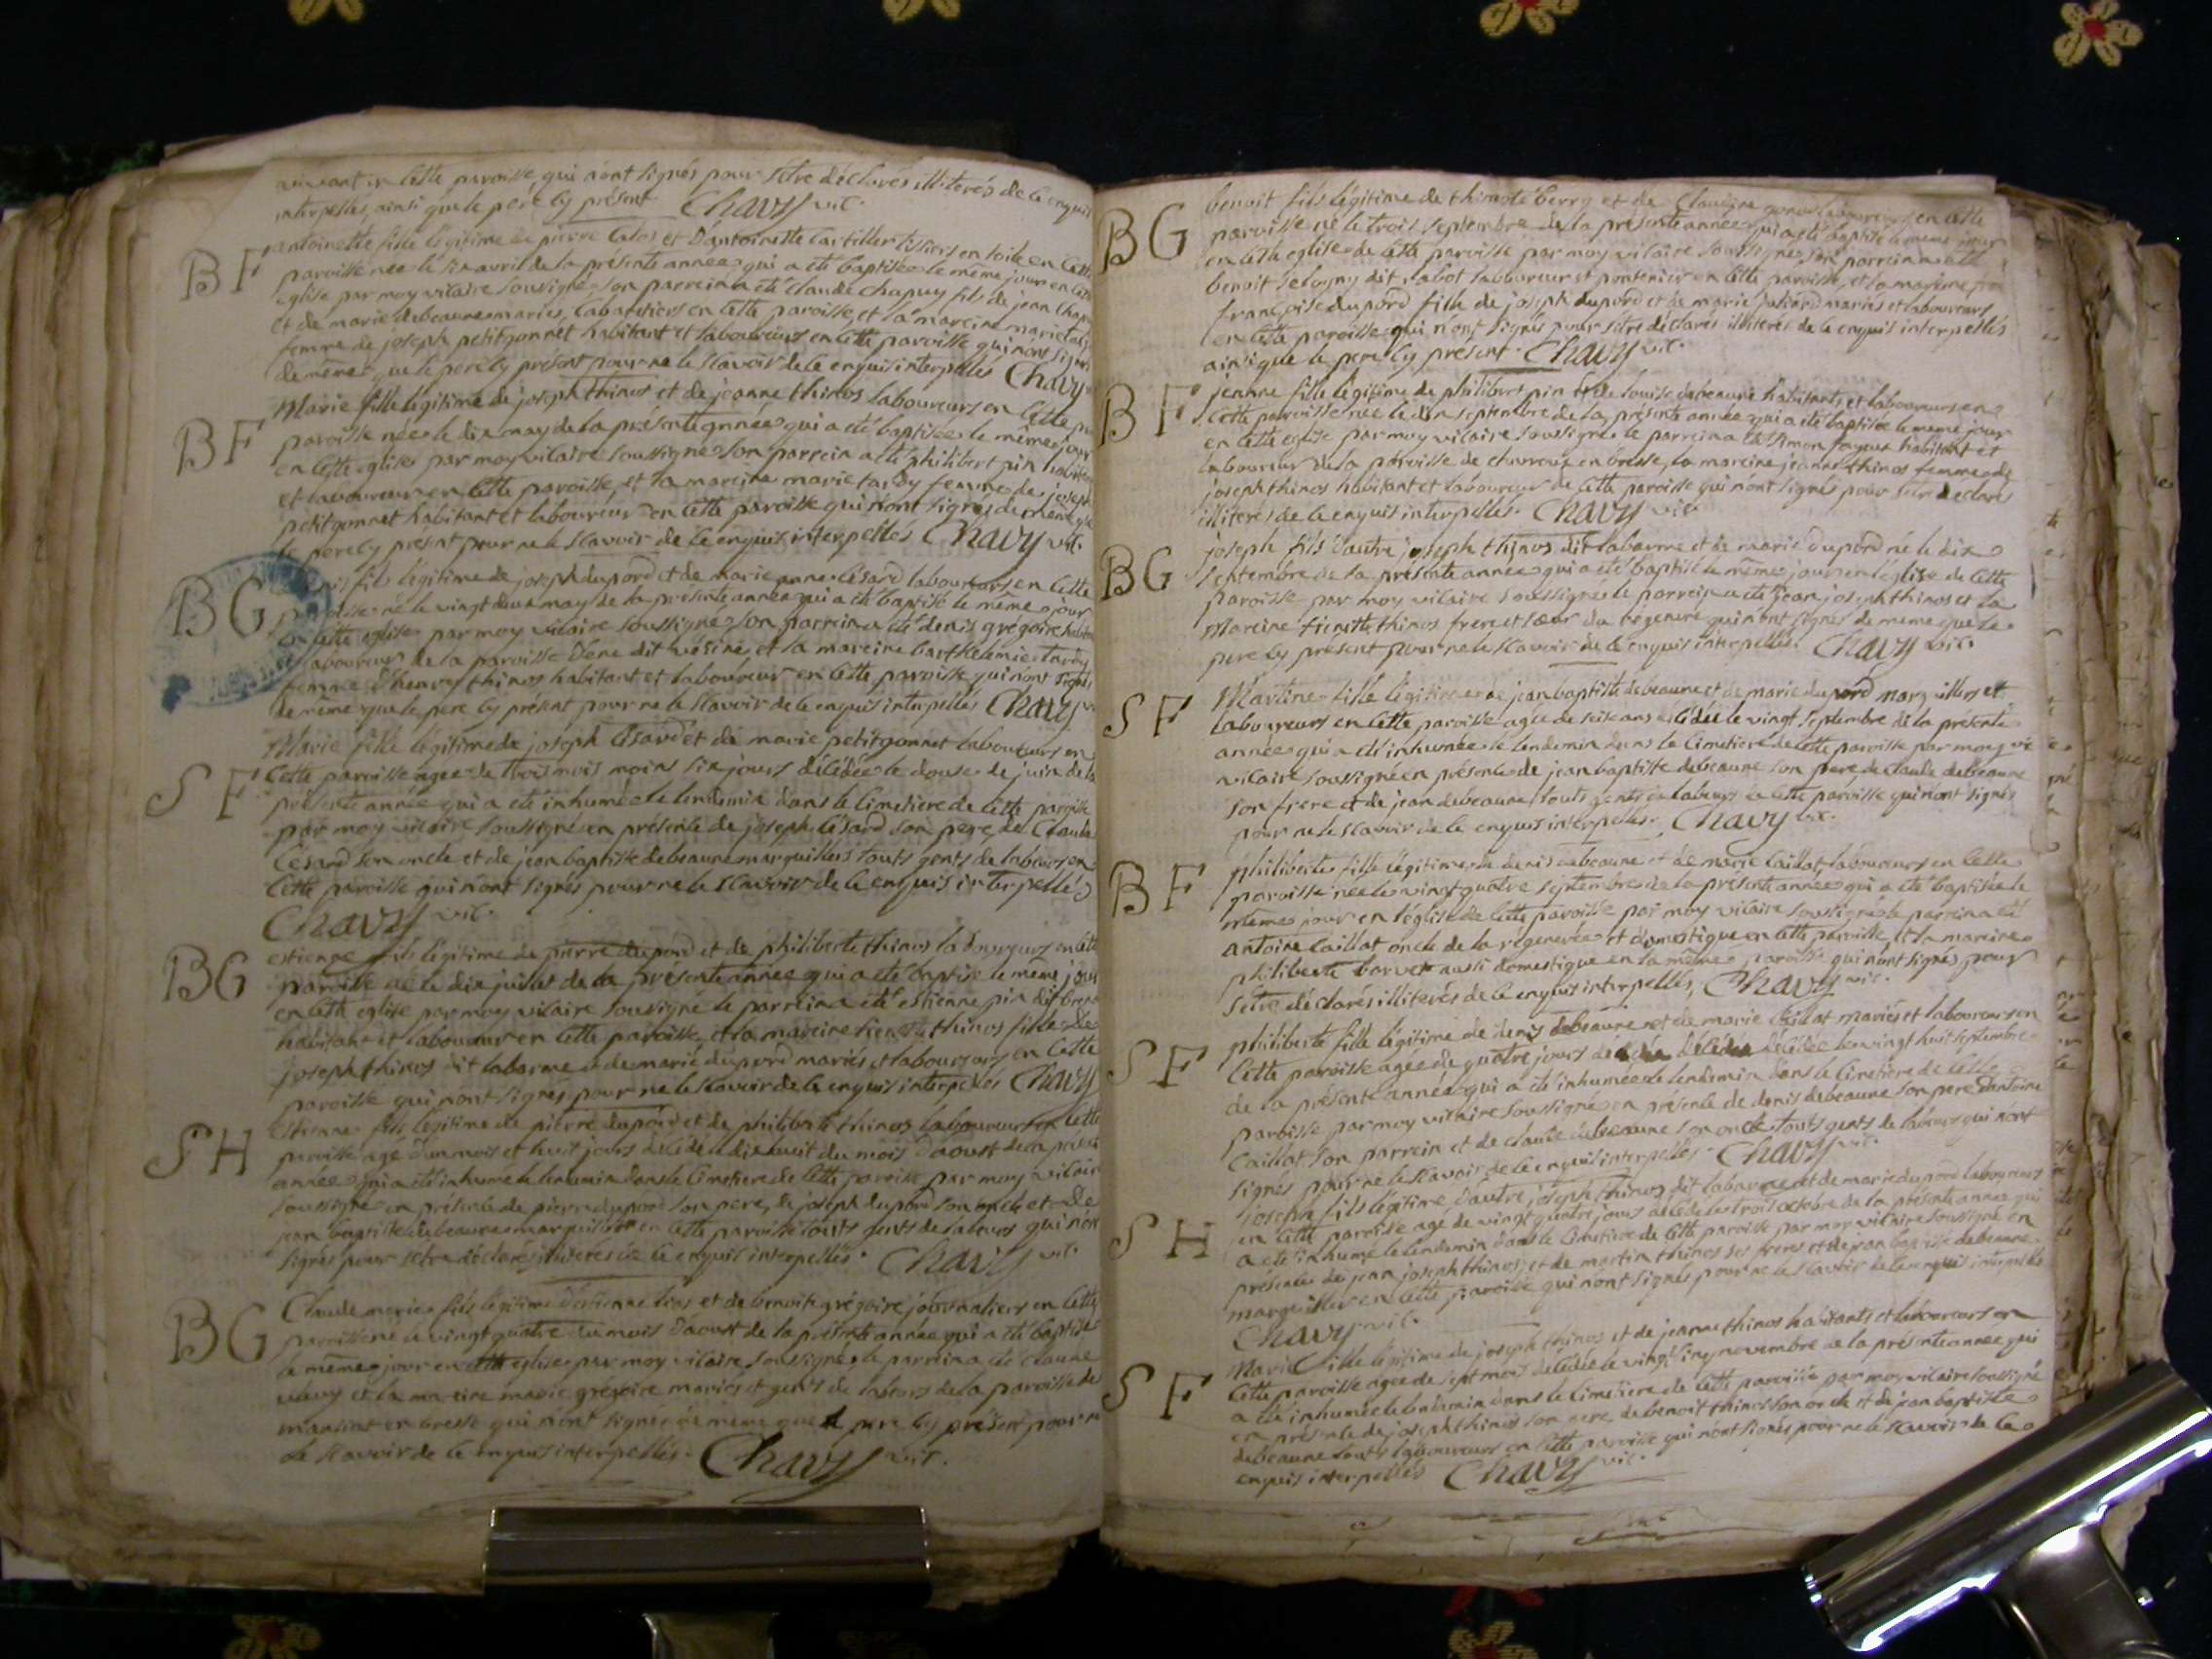 vivant en cette paroisse qui n'ont signés pour s'être déclarés illiterés de ce enquis
interpellés, ainsi que le pere cy présent. Chavy vic.
BF antoinette fille légitime de pierre et d'antoinette tissiers en toile en cette
paroisse née le six avril de la présente année qui a été baptisée le même jour en cette
eglise par moy vicaire soussigné son parrein a été claude chapuy fils de jean
et de marie debeaune mariés, cabaretiers en cette paroisse, et la mareine marie tardy
femme de joseph petitgonnet habitant et laboureurs en cette paroisse qui n'ont signés
de même que le pere cy présent pour ne le scavoir de ce enquis interpellés Chavy
BF Marie fille légitime de joseph thinos et de jeanne thinos laboureurs en cette
paroisse née le dix may de la présente année qui a été baptisée le même jour
en cette eglise par moy vicaire soussigné son parrein a été philibert pin habitant
et laboureur en cette paroisse, et la mareine marie tardy femme de joseph
petitgonnet habitant et laboureur en cette paroisse qui n'ont signés de même que
le pere cy présent pour ne le scavoir de ce enquis interpellés Chavy vic.
BG fils légitime de joseph dupord et de marie anne César laboureurs en cette
paroisse né le vingt deux may de la présente année qui a été baptisé le même jour
en cette eglise par moy vicaire soussigné son parrein a été denis grégoire habitant
et laboureur de la paroisse et la mareine barthelemie tardy
femme d' thinos habitant et laboureur en cette paroisse qui n'ont signés
de même que le pere cy présent pour ne le scavoir de ce enquis interpellés Chavy
SF Marie fille légitime de joseph Césard et de marie petitgonnet laboureurs en
cette paroisse agée de trois mois moins six jours décédée le douse de juin de la
présente année qui a été inhumée le lendemin dans le cimetiere de cette paroisse
par moy vicaire soussigné en présence de joseph Césard son pere de Claude
Césard son oncle et de jean baptiste debeaune marguilliers touts gents de labeurs en
cette paroisse qui n'ont signés pour ne le scavoir de ce enquis interpellés
Chavy vic.
BG estienne fils légitime de pierre dupord et de philiberte thinos laboureurs en cette
paroisse né le dix juillet de la présente année qui a été baptisé le même jour
en cette eglise par moy vicaire soussigné le parrein a été estienne pin dit
habitant et laboureur en cette paroisse, et la mareine thinos fille de
joseph thinos dit labarme et de marie dupord mariés et laboureurs en cette
paroisse qui n'ont signés pour ne le scavoir de ce enquis interpellés Chavy
SH Estienne fils légitime de pierre dupord et de philiberte thinos laboureurs en cette
paroisse agé d'un mois et huit jours décédé le dixhuit du mois d'aoust de la présente
année qui a été inhumé le lendemin dans le cimetiere de cette paroisse par moy vicaire
soussigné en présence de pierre dupord son pere, de joseph dupord son oncle et de
jean baptiste debeaune marguillier en cette paroisse touts gents de labeurs qui n'ont
signés pour s'être déclarés illiterés de ce enquis interpellés. Chavy vic.
BG Claude marie fils légitime d'estienne et de benoite grégoire journaliers en cette
paroisse né le vingt quatre du mois d'aoust de la présente année qui a été baptisé
le même jour en cette eglise par moy vicaire soussigné le parrein a été claude
et la mareine marie grégoire mariés et gents de labeurs de la paroisse de
en bresse qui n'ont signés de même que le pere cy présent pour ne
le scavoir de ce enquis interpellés. Chavy vic.
BG benoit fils légitime de thimoté berry et de Claudine laboureurs en cette
paroisse né le trois septembre de la présente année qui a été baptisé le même jour
en cette eglise de cette paroisse par moy vicaire soussigné son parrein a été
benoit dit laboureur et en cette paroisse, et la mareine
françoise dupord fille de joseph dupord et de marie mariés et laboureurs
en cette paroisse qui n'ont signés pour s'être déclarés illiterés de ce enquis interpellés
ainsi que le pere cy présent. Chavy vic.
BF jeanne fille légitime de philibert pin et de louise debeaune habitants et laboureurs en
cette paroisse née le septembre de la présente année qui a été baptisée le même jour
en cette eglise par moy vicaire soussigné le parrein a été simon habitant et
laboureur de la paroisse de en bresse, la mareine jeanne thinos femme de
joseph thinos habitant et laboureur de cette paroisse qui n'ont signés pour s'être déclarés
illiterés de ce enquis interpellés. Chavy vic.
BG joseph fils d'autre joseph thinos dit labarme et de marie dupord né le dix
septembre de la présente année qui a été baptisé le même jour en l'église de cette
paroisse par moy vicaire soussigné le parrein a été jean joseph thinos et la
mareine thinos frere et sœur du régénéré qui n'ont signés de même que le
pere cy présent pour ne le scavoir de ce enquis interpellés. Chavy vic.
SF Martine fille légitime de jean baptiste debeaune et de marie dupord marguilliers et
laboureurs en cette paroisse agée de seise ans décédée le vingt septembre de la présente
année qui a été inhumée le lendemin dans le cimetiere de cette paroisse par moy vi
vicaire soussigné en présence de jean baptiste debeaune son pere de claude debeaune
son frere et de jean debeaune touts gents de labeurs en cette paroisse qui n'ont signés
pour ne le scavoir de ce enquis interpellés. Chavy vic.
BF philiberte fille légitime de denis debeaune et de marie Caillat, laboureurs en cette
paroisse née le vingt quatre septembre de la présente année qui a été baptisée le
même jour en l'église de cette paroisse par moy vicaire soussigné le parrein a été
antoine Caillat oncle de la régénérée et domestique en cette paroisse, et la mareine
philiberte aussi domestique en la même paroisse qui n'ont signés pour
s'être déclarés illiterés de ce enquis interpellés, Chavy vic.
SF philiberte fille légitime de denis debeaune et de marie Caillat mariés et laboureurs en
cette paroisse agée de quatre jours décédée le vingt huit septembre
de la présente année qui a été inhumée le lendemin dans le cimetiere de cette
paroisse par moy vicaire soussigné en présence de denis debeaune son pere d'antoine
Caillat son parrein et de claude debeaune son oncle touts gents de labeurs qui n'ont
signés pour ne le scavoir de ce enquis interpellés. Chavy vic.
SH joseph fils légitime d'autre joseph thinos dit labarme et de marie dupord laboureurs
en cette paroisse agé de vingt quatre jours décédé le trois octobre de la présente année qui
a été inhumé le lendemin dans le cimetiere de cette paroisse par moy vicaire soussigné en
présence de jean joseph thinos, et de martin thinos ses freres et de jean baptiste debeaune
marguillier en cette paroisse qui n'ont signés pour ne le scavoir de ce enquis interpellés
Chavy vic.
SF Marie fille légitime de joseph thinos et de jeanne thinos habitants et laboureurs en
cette paroisse agée de sept mois décédée le vingt cinq novembre de la présente année qui
a été inhumée le lendemin dans le cimetiere de cette paroisse par moy vicaire soussigné
en présence de joseph thinos son pere, de benoit thinos son oncle et de jean baptiste
debeaune touts laboureurs en cette paroisse qui n'ont signés pour ne le scavoir de ce
enquis interpellés Chavy vic.